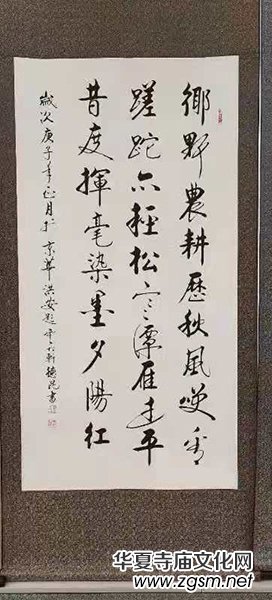 鄉野農耕歷秋風
蹉跎亦輕松寒潭雁走平
昔度揮毫染墨夕陽紅
歲次庚子年正月於京華洪安題
书
华夏寺庙文化网
www.zgsm.net